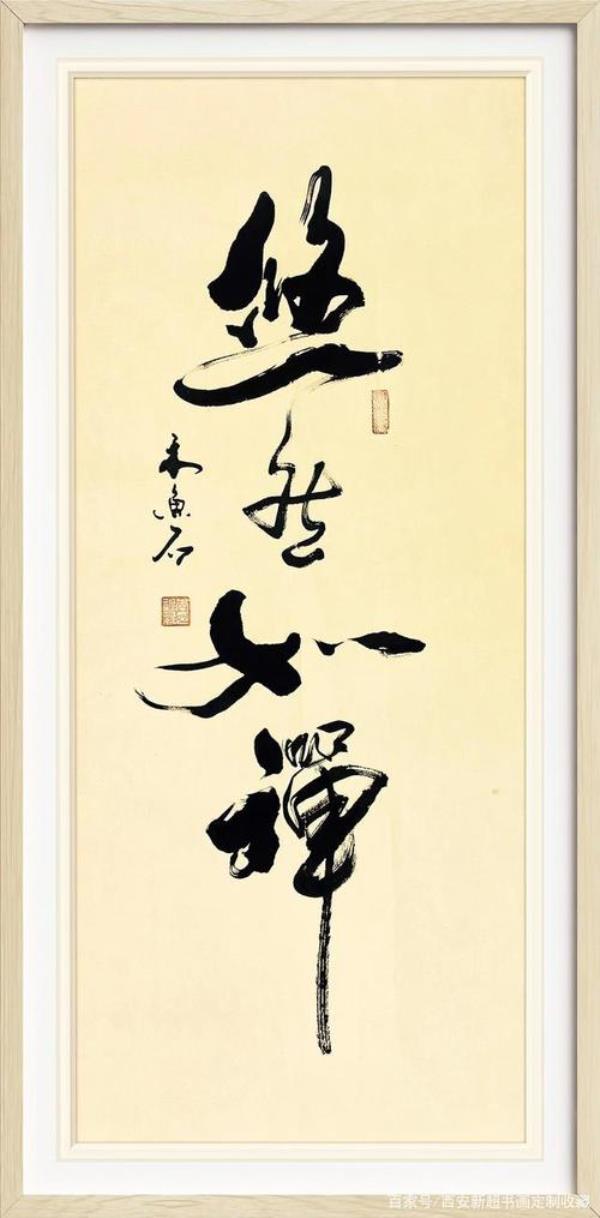 悠然如禪
禾魚石
百家号/西安新超书画定制收藏